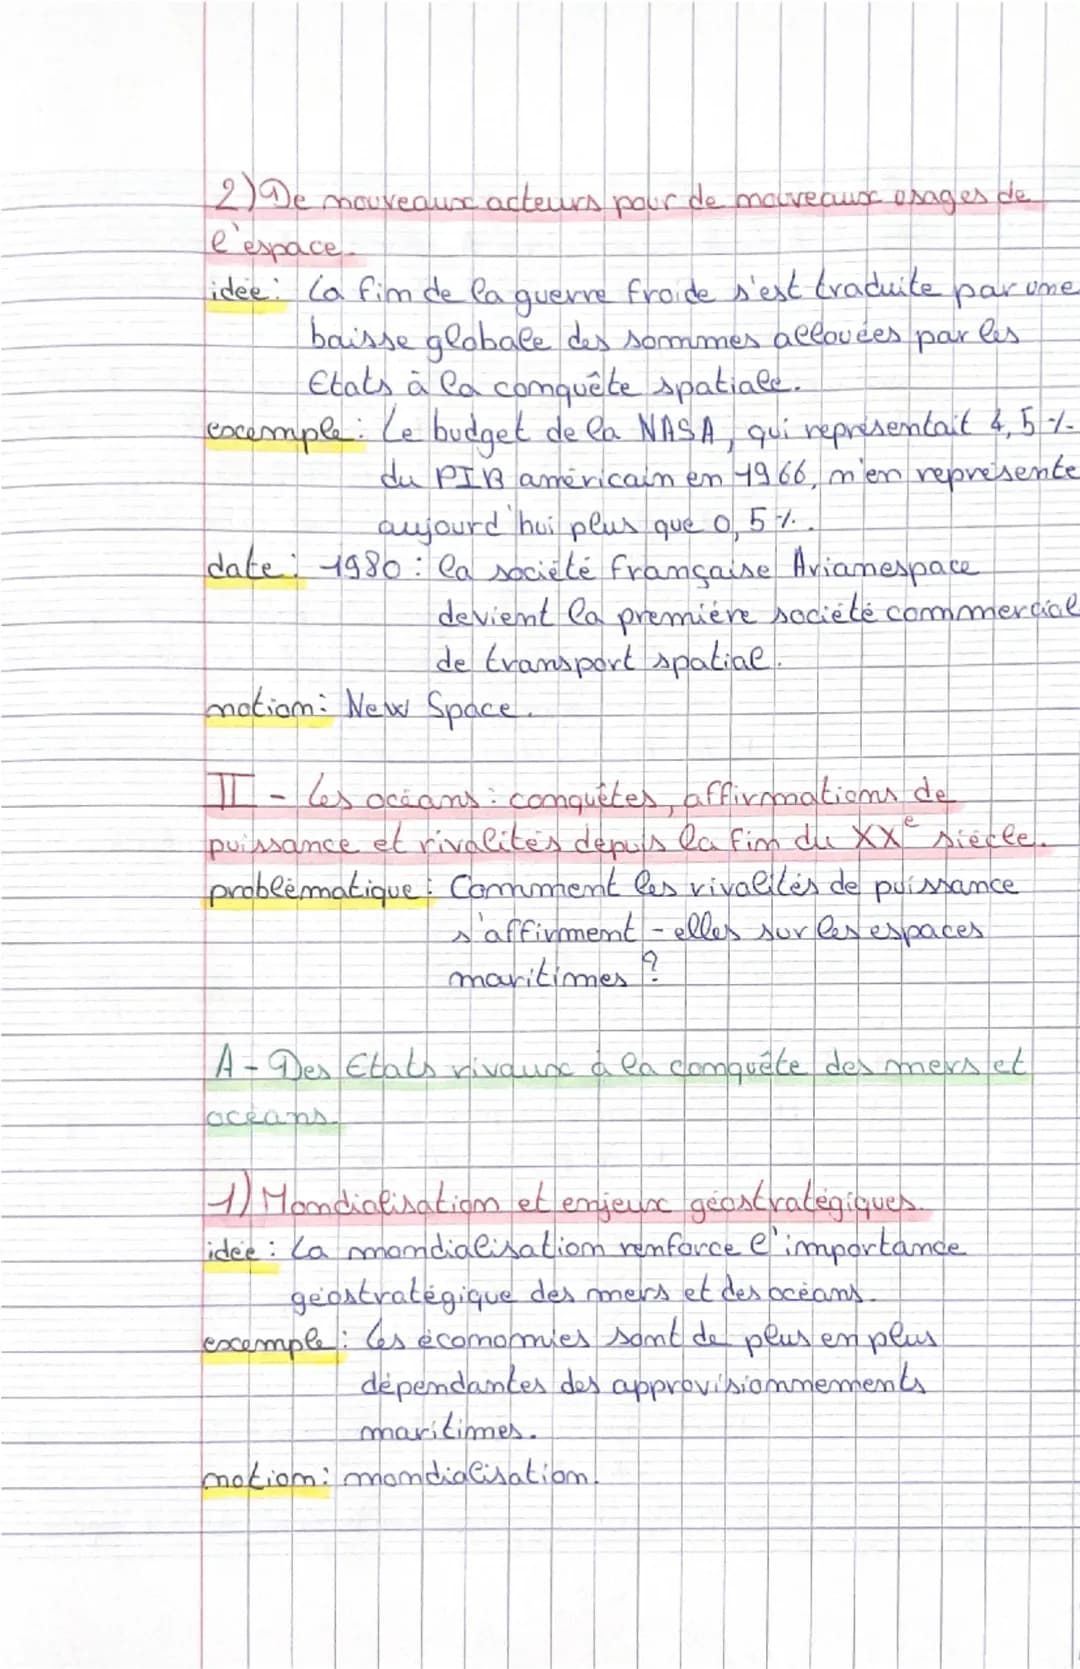 2) De nouveaux acteurs pour de nouveaux usages de
l'espace.
idée : La fin de la guerre froide s'est traduite par une
baisse globale des sommes allouées par les
Etats à la conquête spatiale.
exemple : Le budget de la NASA, qui représentait 4,5 %
du PIB américain en 1966, n'en représente
aujourd'hui plus que 0,5 %.
date : 1980 : la société française Arianespace
devient la première société commercial
de transport spatial.
notion : New Space.
II - Les océans : conquêtes, affirmations de
puissance et rivalités depuis la fin du XXe siècle.
problématique : Comment les rivalités de puissance
s'affirment-elles sur les espaces
maritimes ?
A - Des Etats rivaux à la conquête des mers et
océans.
1) Mondialisation et enjeux géostratégiques.
idée : La mondialisation renforce l'importance
géostratégique des mers et des océans.
exemple : Les économies sont de plus en plus
dépendantes des approvisionnements
maritimes.
notion : mondialisation.